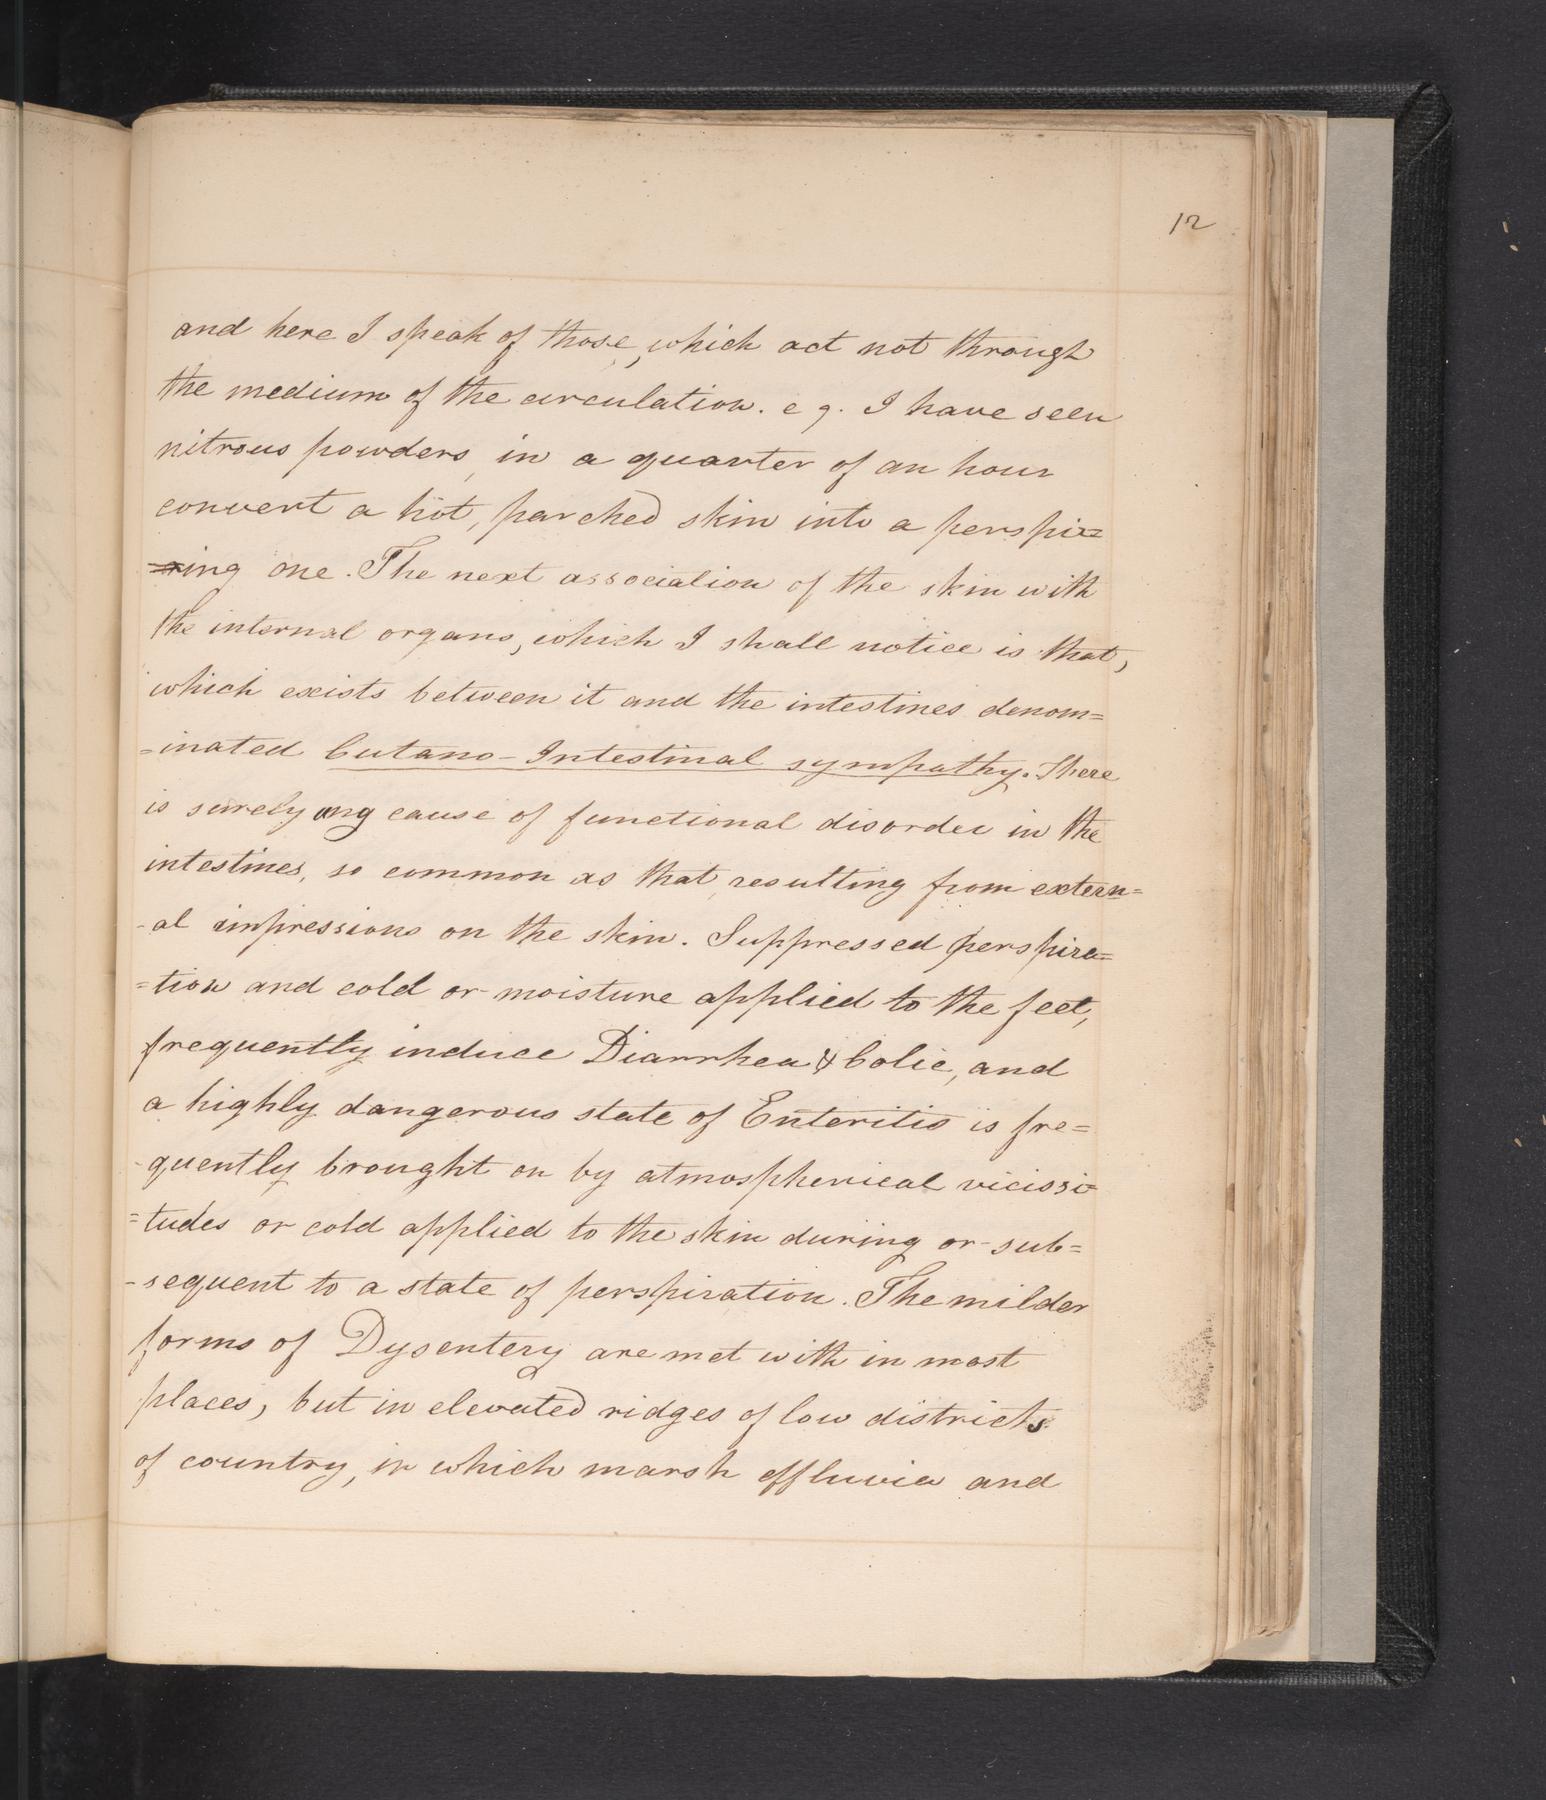 12
and here I speak of those, which act not through
the medium of the circulation. e g. I have seen
nitrous powders, in a quarter of an hour
convert a hot, parched skin into a perspir=
=ing one. The next association of the skin with
the internal organs, which I shall notice is that,
which exists between it and the intestines denom=
=inated Cutano-Intestinal sympathy. There
is surely cause of functional disorder in the
intestines, so common as that, resulting from extern=
-al impressions on the skin. Suppressed perspira=
=tion and cold or moisture applied to the feet,
frequently induce Diarrhea & Colic, and
a highly dangerous state of Enteritis is fre=
-quently brought on by atmospherical vicissi=
=tudes or cold applied to the skin during or sub=
-sequent to a state of perspiration. The milder
forms of Dysentery are met with in most
places, but in elevated ridges of low districts
of country, in which marsh effluvia and